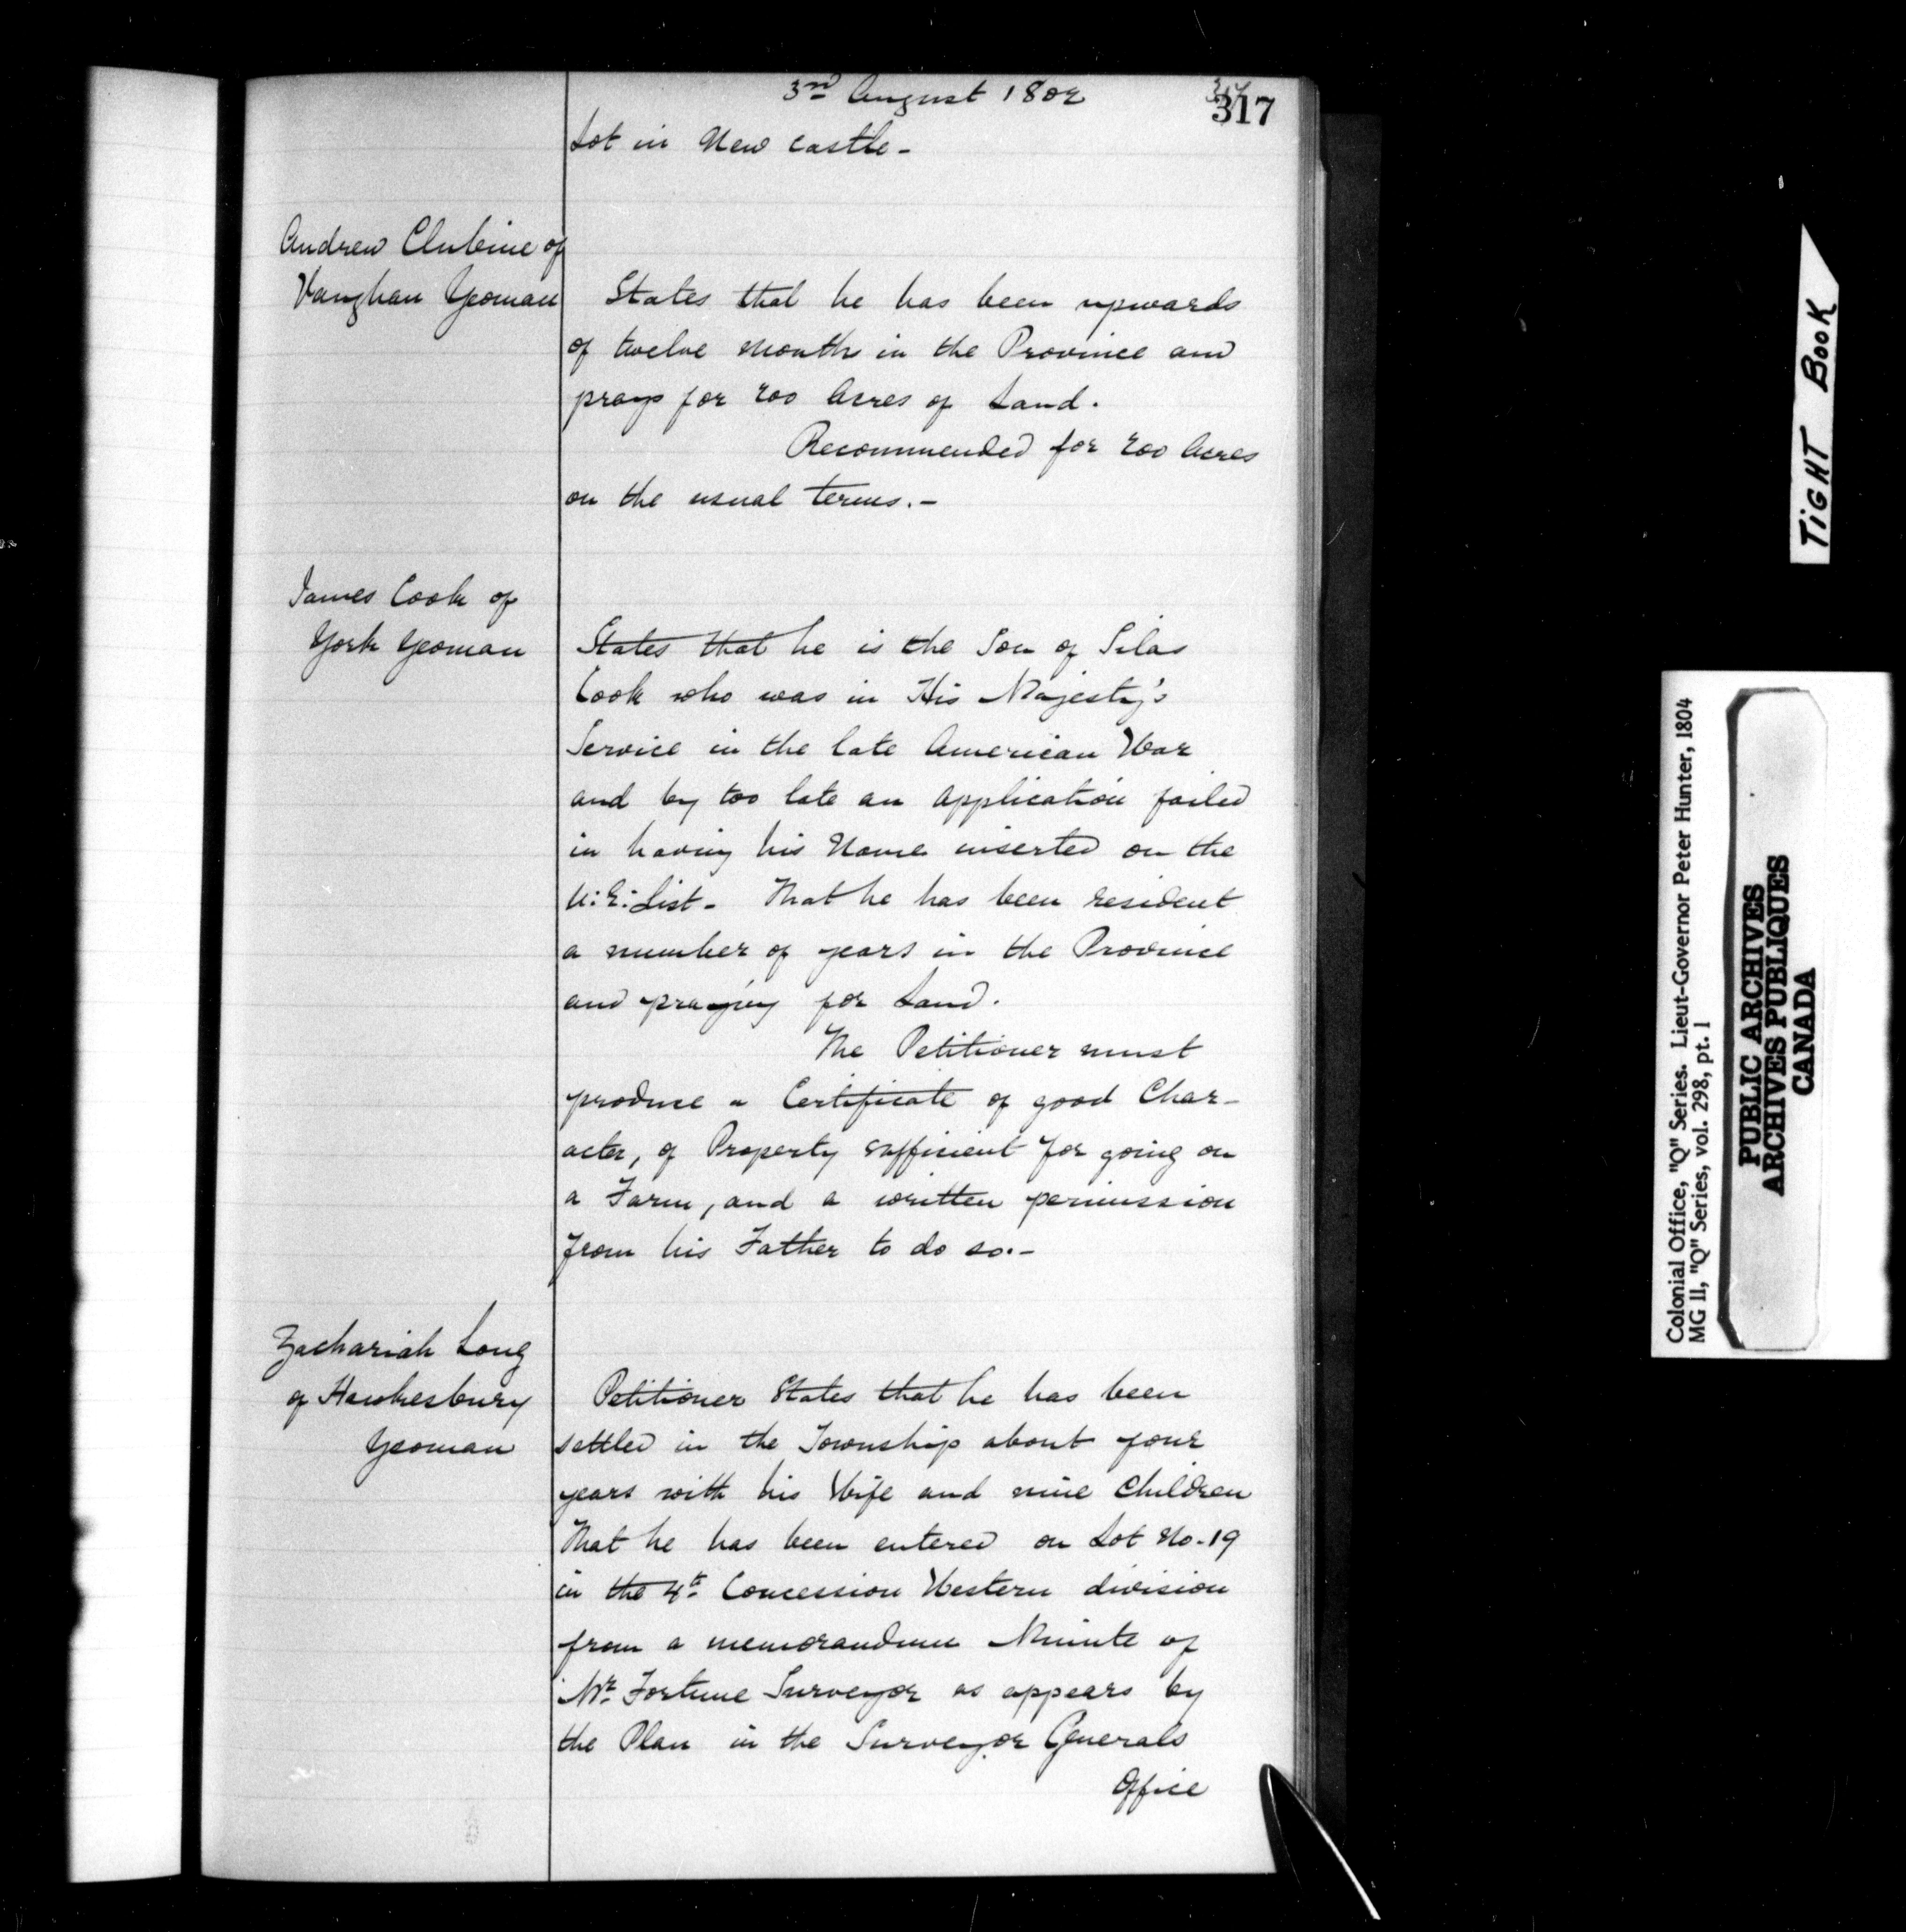 3rd August 1802
317
317
Lot in New castle-
Andrew Clubine of
Vaughan Yeoman
States that he has been upwards
of twelve months in the Province and
prays for 200 Acres of Land.
Recommended for 200 Acres
on the usual terms.-
James Cook of
York Yeoman
States that he is the Son of Silas
Cook who was in His Majesty's
Service in the late American War
and by too late an application failed
in having his Name inserted on the
U:E: List- That he has been resident
a number of years in the Province
and praying for Land.
The Petitioner must
produce a Certificate of good Char-
acter, of Property sufficient for going on
a Farm, and a written permission
from his Father to do so.-
Zachariah Long
of Hawkesbury
Yeoman
Petitioner States that he has been
settled in the Township about four
years with his Wife and nine Children
That he has been entered on Lot No. 19
in the 4th Concession Western division
from a memorandum Minute of
Mr Fortune Surveyor as appears by
the Plan in the Surveyor Generals
Office
TIGHT BOOK
Colonial Office, "Q" Series. Lieut-Governor Peter Hunter, 1804
MG 11, "Q" Series, vol. 298, pt. 1
PUBLIC ARCHIVES
ARCHIVES PUBLIQUES
CANADA